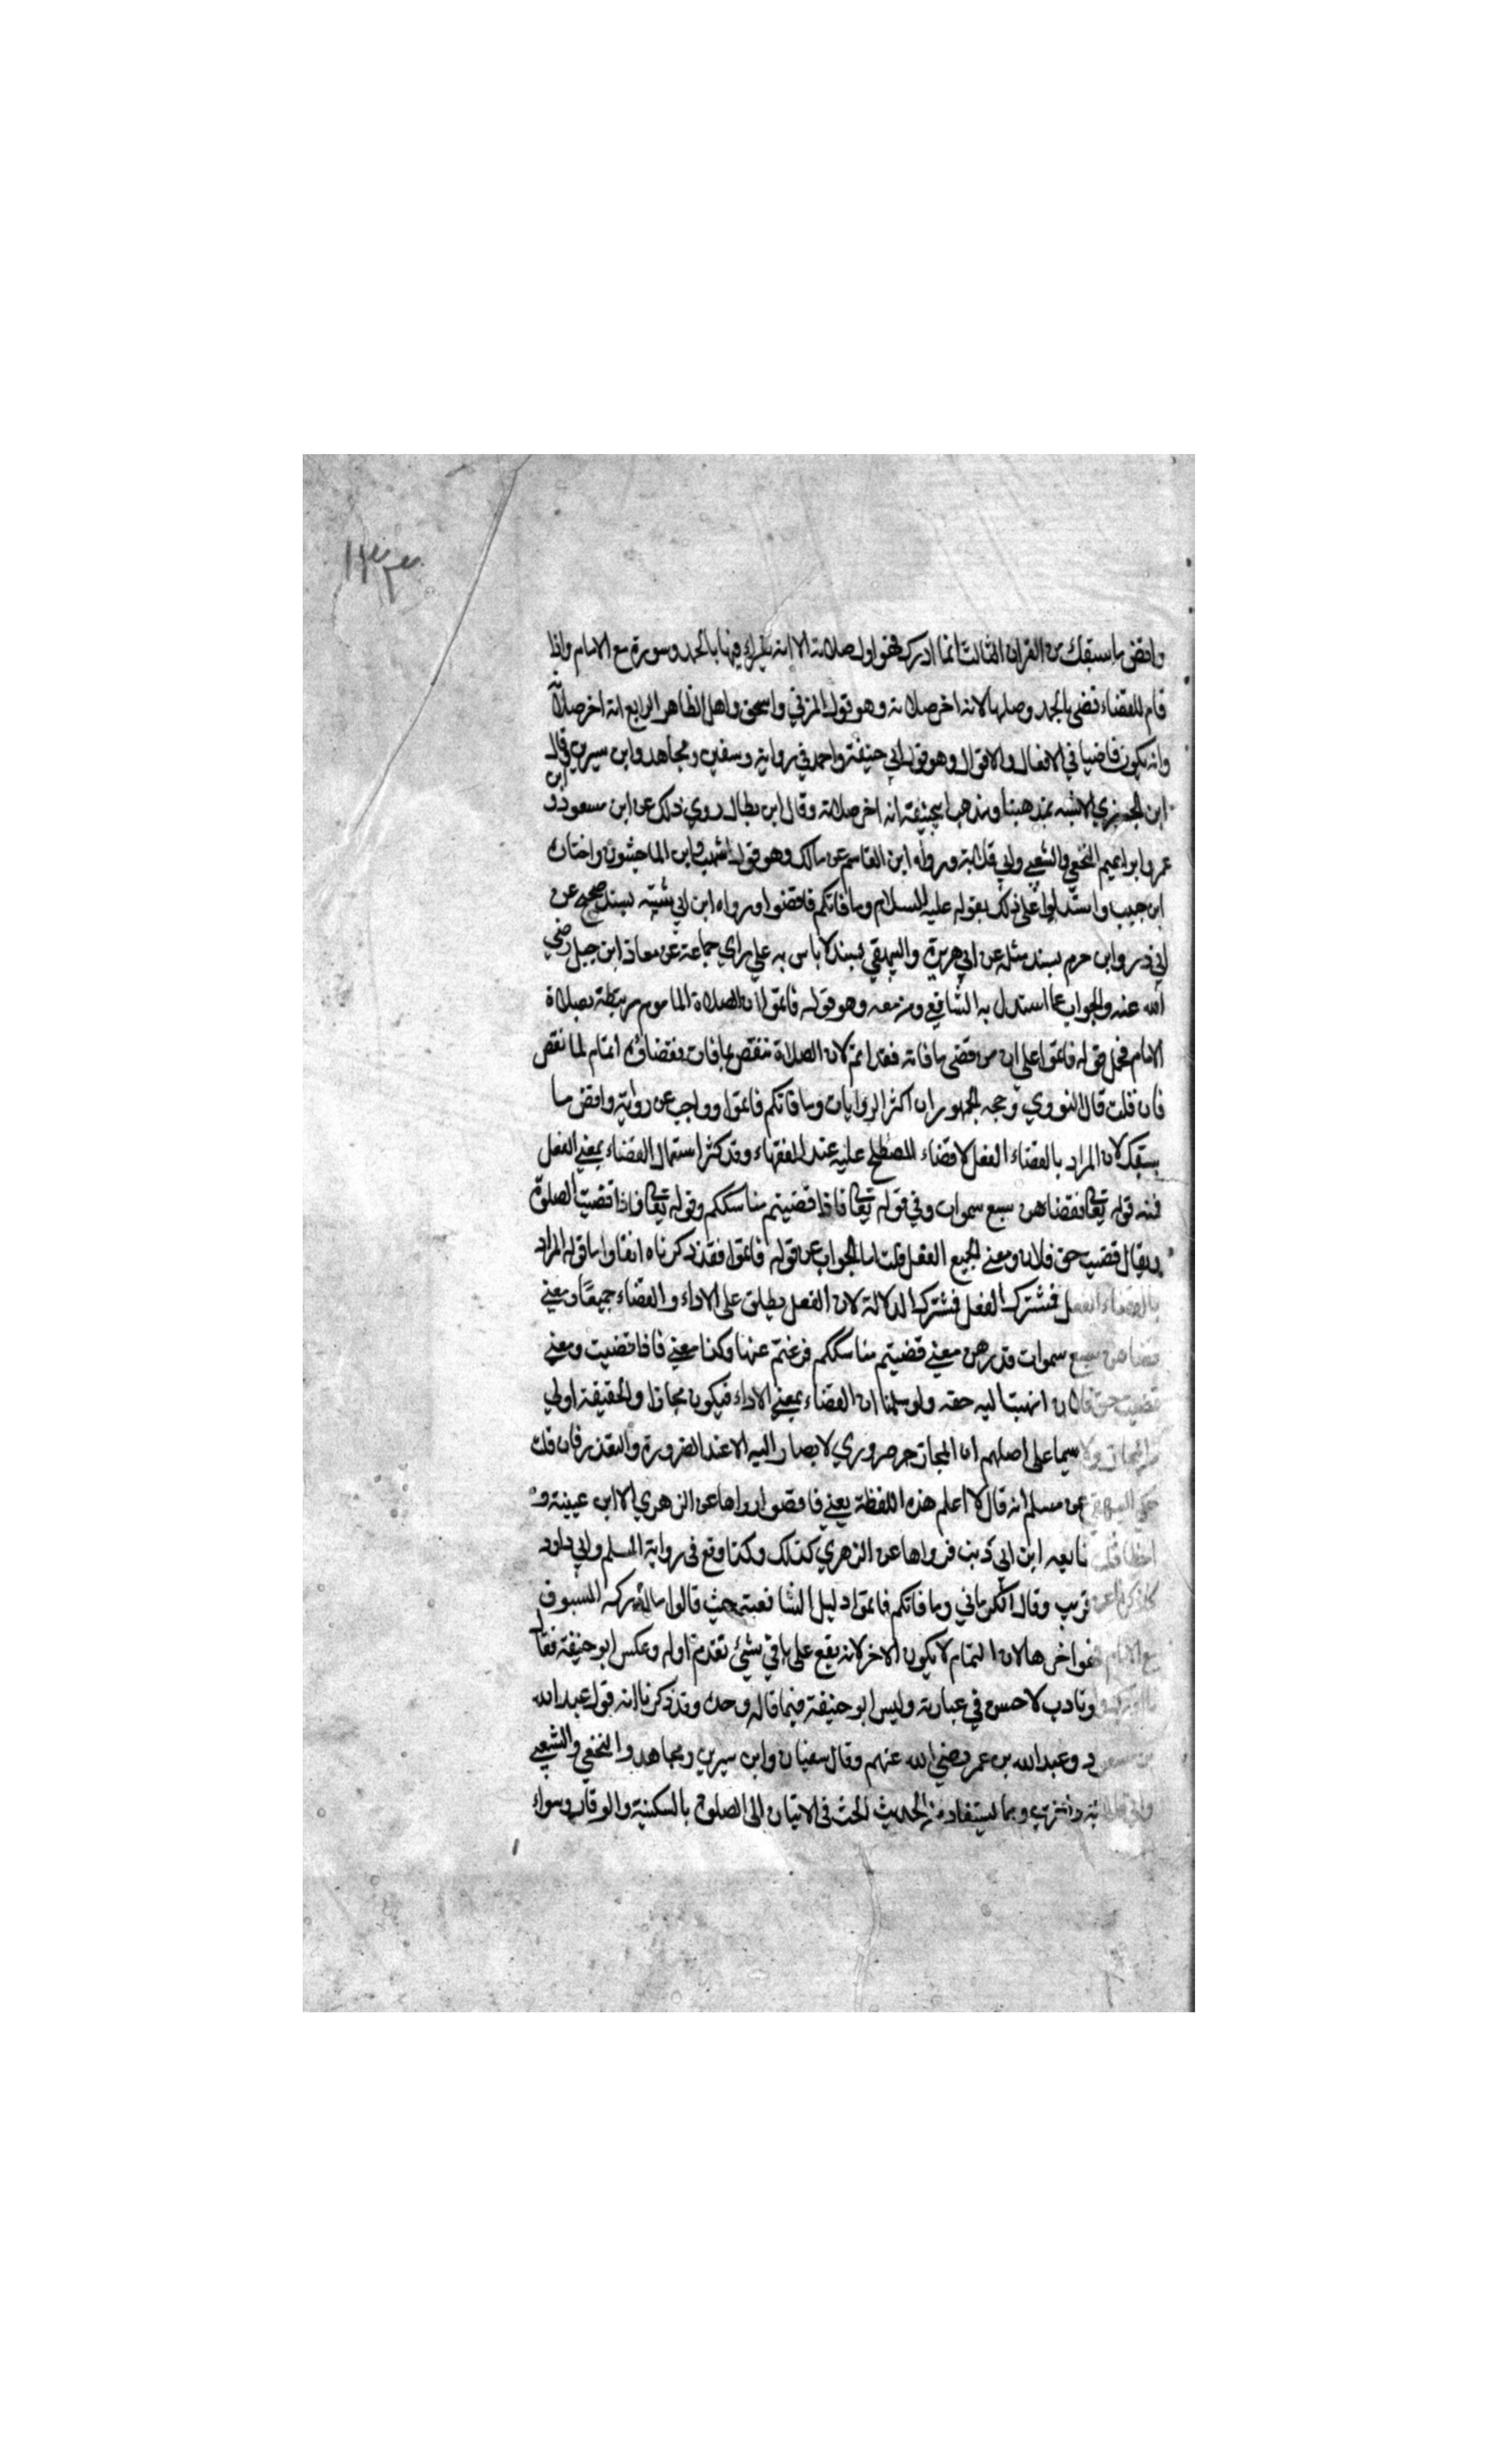 ١٣٣
واقض ما سبقك من القران الثالث انما ادرك فهو اول صلاته الا انه يقرا فيها بالحمد وسورة مع الامام واذا
قام للقضاء قضى بالحمد وصلها لانه اخر صلاته وهو قول المزني واسحق واهل الظاهر الرابع انه اخر صلاته
وانه يكون قاضيا في الافعال والاقوال وهو قول ابي حنيفة واحمد في رواية وسفين ومجاهد وابن سيرين قال
ابن الجوزي الاشبه بمذهبنا ومذهب ابيحنيفة انه اخر صلاته وقال ابن بطال روي ذلك عن ابن مسعود وابن
عمر وابراهيم النخعي والشعبي وابي قلابة ورواه ابن القاسم عن مالك وهو قول اشهب وابن الماجشون واختاره
ابن حبيب واستدلوا على ذلك بقوله عليه السلام وما فاتكم فاقضوا ورواه ابن ابي شيبة بسند صحيح عن
ابي ذر وابن حزم بسند مثله عن ابي هريرة والبيهقي بسند لا باس به على راي جماعة عن معاذ ابن جبل رضي
الله عنه والجواب عما استدل به الشافعي ومن معه وهو قوله فاتموا ان صلاة الماموم مرتبطة بصلاة
الامام فحمل قوله فاتموا على ان من قضى ما فاته فقد اتم لان الصلاة تنقص بما فات فقضاؤه اتمام لما نقص
فان قلت قال النووي وحجه الجمهور ان اكثر الروايات وما فاتكم فاتموا وواجب عن رواية واقض ما
سبقك لان المراد بالقضاء الفعل لا قضاء المصطلح عليه عند الفقهاء وقد كثر استعمال القضاء بمعنى الفعل
فمنه قوله تعالى فقضاهن سبع سموات وفي قوله تعالى فاذا قضيتم مناسككم وقوله تعالى فاذا قضيت الصلوة
ويقال قضيت حق فلان ومعنى الجميع الفعل قلت اما الجواب عن قوله فاتموا فقد ذكرناه انفا واما قوله المراد
بالقضاء الفعل فمشترك الفعل فمشترك الدلالة لان الفعل يطلق على الاداء والقضاء جميعا ومعنى
قضاهن سبع سموات قدرهن معنى قضيتم مناسككم فرغتم عنها وكذا معنى فاذا قضيت ومعنى
قضيت حق فلان انهيت اليه حقه ولو سلمنا ان القضاء بمعنى الاداء فيكون مجازا والحقيقة اولى
من المجاز ولا سيما على اصلهم ان المجاز ضروري لا يصار اليه الا عند الضرورة والتعذر فان قلت
حكى البيهقي عن مسلم انه قال لا اعلم هذه اللفظة يعني فاقضوا رواها عن الزهري الا ابن عيينة و
اخطا قلت تابعه ابن ابي ذيب فرواها عن الزهري كذلك وكذا وقع في رواية المسلم وابي داود
كما ذكرنا عن قريب وقال الكرماني وما فاتكم فاتموا دليل الشافعية حيث قالوا ما ادركه المسبوق
مع الامام فهو اخرها لان التمام لا يكون الا لاخر لانه يقع على باقي شئ تقدم اوله وعكس ابو حنيفة فقال
وتادب لاحسن في عبارته وليس ابو حنيفة فيما قاله وحده وقد ذكرنا انه قول عبد الله
بن مسعود وعبد الله بن عمر رضي الله عنهم وقال سفيان وابن سيرين ومجاهد والنخعي والشعبي
وابي قلابة واخرين ومما يستفاد من الحديث الحث في الاتيان الى الصلوة بالسكينة والوقار وسواء